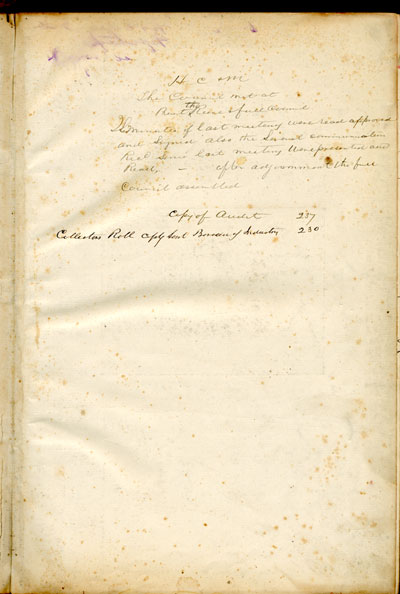 H C M
The Council met at
the Reeve & full Council
Minutes of last meeting were read approved
and signed also the communication
since last meeting were presented and
Read, - after adjournment the full
Council assembled
Copy of Audit 237
Collectors Roll copy sent Bureau of Industry 230